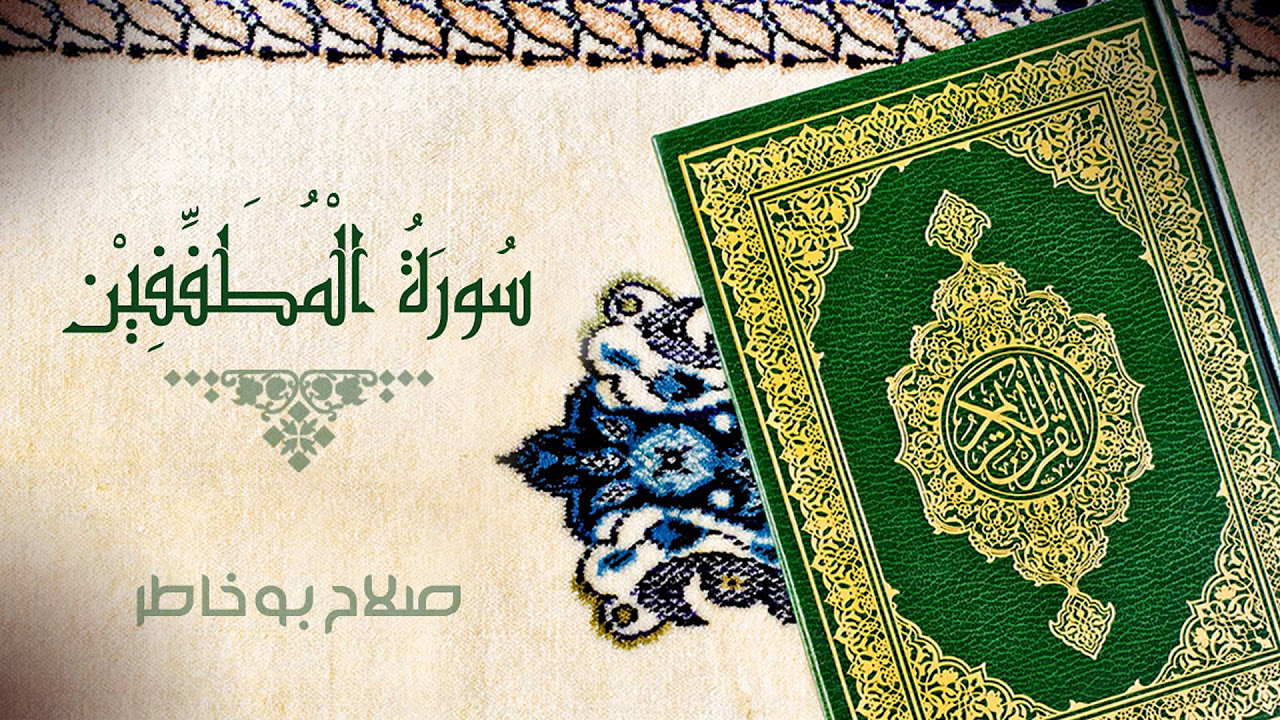 سُورَةُ الْمُطَفِّفِيْن
صلاح بو خاطر
القرآن الكريم